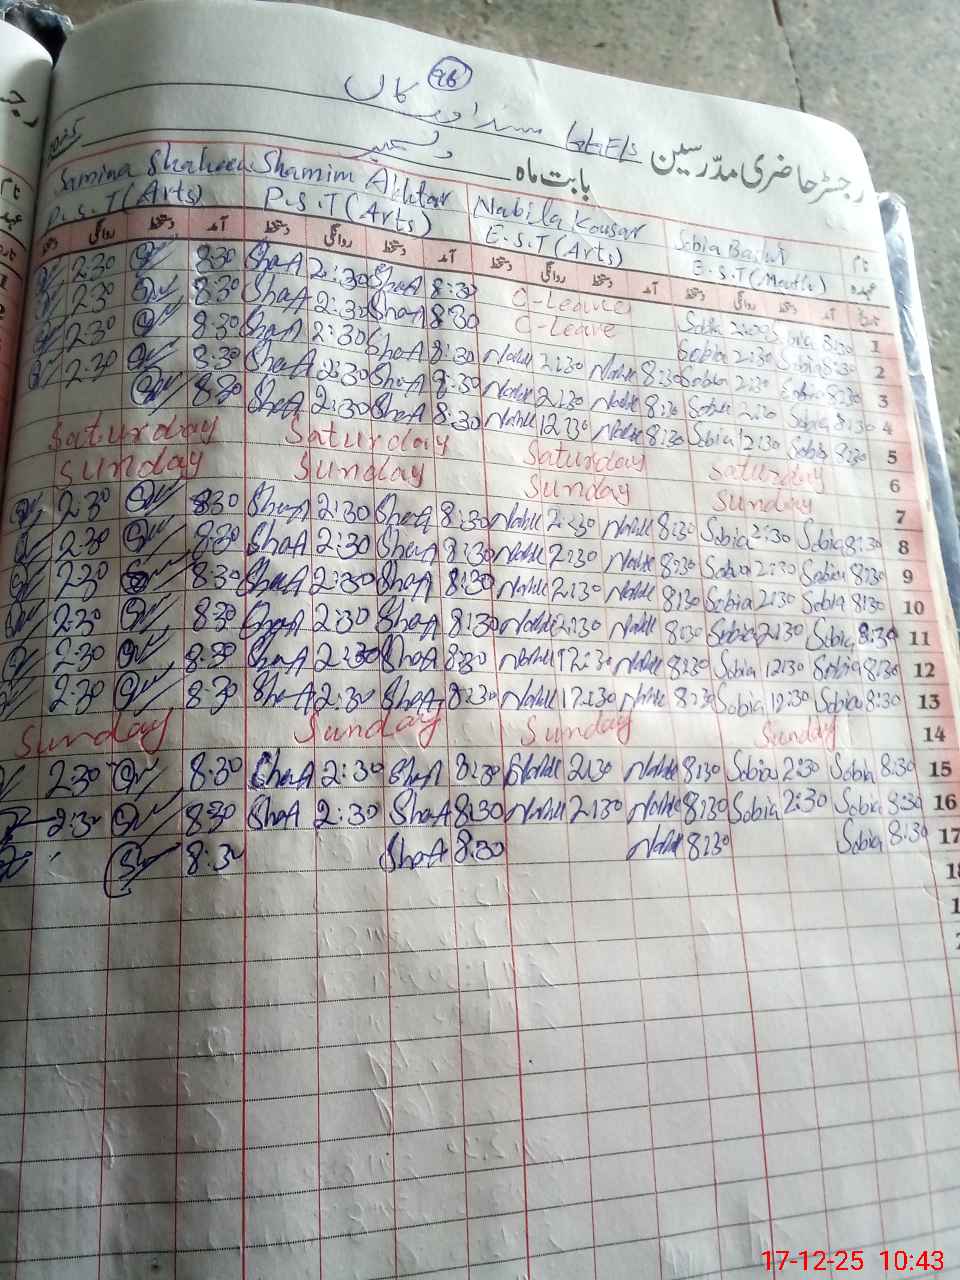 96
رجسٹر حاضری مدرسین GGES
بابت ماہ دسمبر 2025
نام Sobia Bashir Nabila Kousar Shamim Akhtar Samina Shaheen
عہدہ E.S.T (Math) E.S.T (Arts) P.S.T (Arts) P.S.T (Arts)
تاریخ آمد دستخط روانگی دستخط آمد دستخط روانگی دستخط آمد دستخط روانگی دستخط آمد دستخط روانگی دستخط
2:30 8:30 ShaA 2:30 ShaA 8:30 C-Leave Sobia 2:30 Sobia 8:30 1
2:30 8:30 ShaA 2:30 ShaA 8:30 C-Leave Sobia 2:30 Sobia 8:30 2
2:30 8:30 ShaA 2:30 ShaA 8:30 2:30 8:30 Sobia 2:30 Sobia 8:30 3
2:30 8:30 ShaA 2:30 ShaA 8:30 2:30 8:30 Sobia 2:30 Sobia 8:30 4
8:30 ShaA 2:30 ShaA 8:30 12:30 8:30 Sobia 12:30 Sobia 8:30 5
Saturday Saturday Saturday Saturday 6
Sunday Sunday Sunday Sunday 7
2:30 8:30 ShaA 2:30 ShaA 8:30 2:30 8:30 Sobia 2:30 Sobia 8:30 8
2:30 8:30 ShaA 2:30 ShaA 8:30 2:30 8:30 Sobia 2:30 Sobia 8:30 9
2:30 8:30 ShaA 2:30 ShaA 8:30 2:30 8:30 Sobia 2:30 Sobia 8:30 10
2:30 8:30 ShaA 2:30 ShaA 8:30 2:30 8:30 Sobia 2:30 Sobia 8:30 11
2:30 8:30 ShaA 2:30 ShaA 8:30 12:30 8:30 Sobia 12:30 Sobia 8:30 12
2:30 8:30 ShaA 2:30 ShaA 8:30 12:30 8:30 Sobia 12:30 Sobia 8:30 13
Sunday Sunday Sunday Sunday 14
2:30 8:30 ShaA 2:30 ShaA 8:30 2:30 8:30 Sobia 2:30 Sobia 8:30 15
2:30 8:30 ShaA 2:30 ShaA 8:30 2:30 8:30 Sobia 2:30 Sobia 8:30 16
8:30 ShaA 8:30 8:30 Sobia 8:30 17
18
17-12-25 10:43